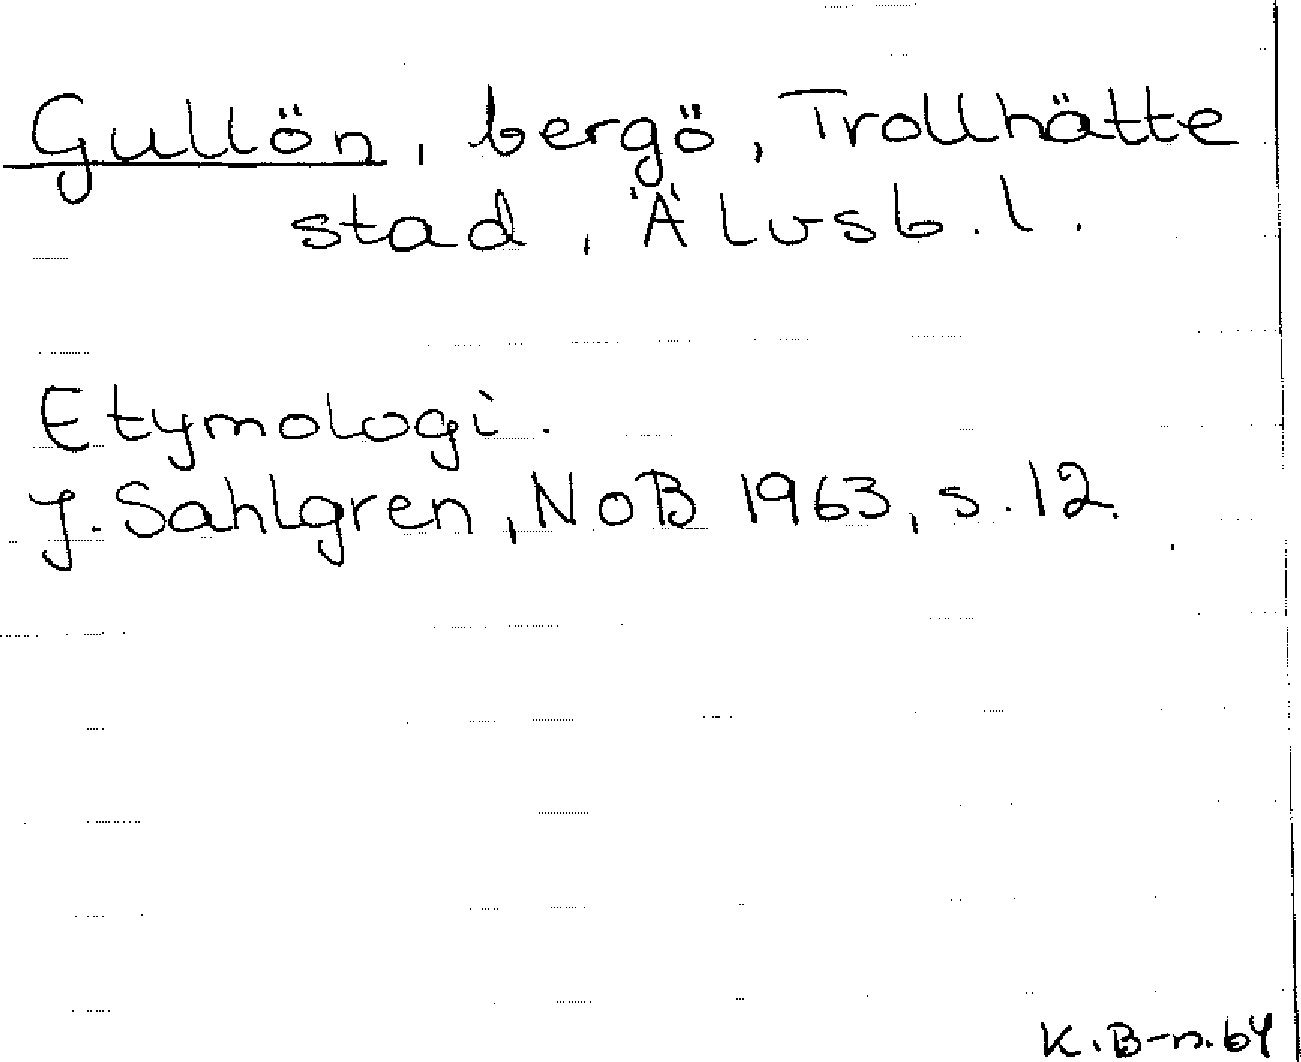 Gullön, bergö, Trollhätte
stad, Älvsb. l.
Etymologi.
J. Sahlgren, NoB 1963, s. 12.
K. B-n. 64